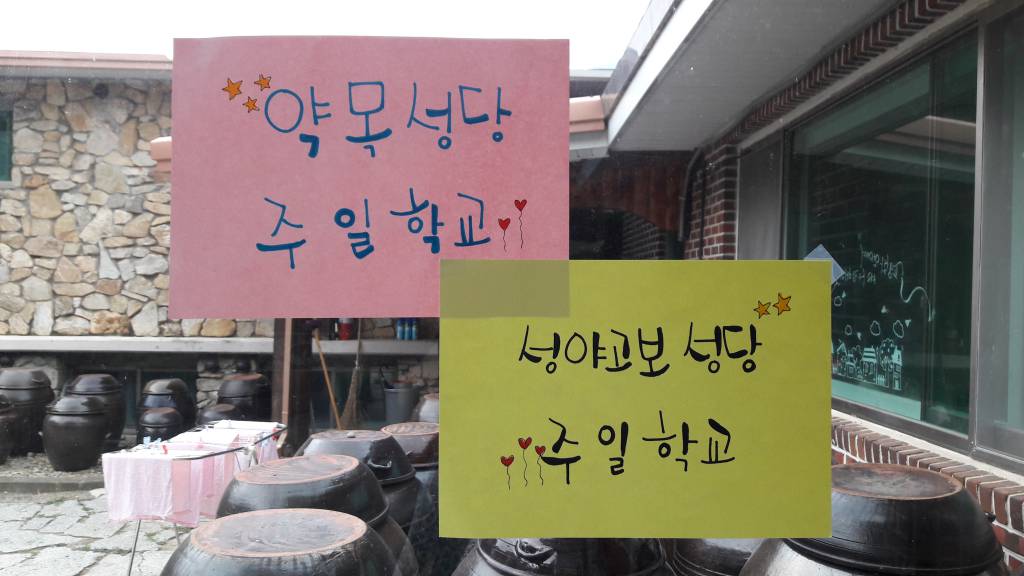 약목성당
주일학교
성야고보 성당
주일학교